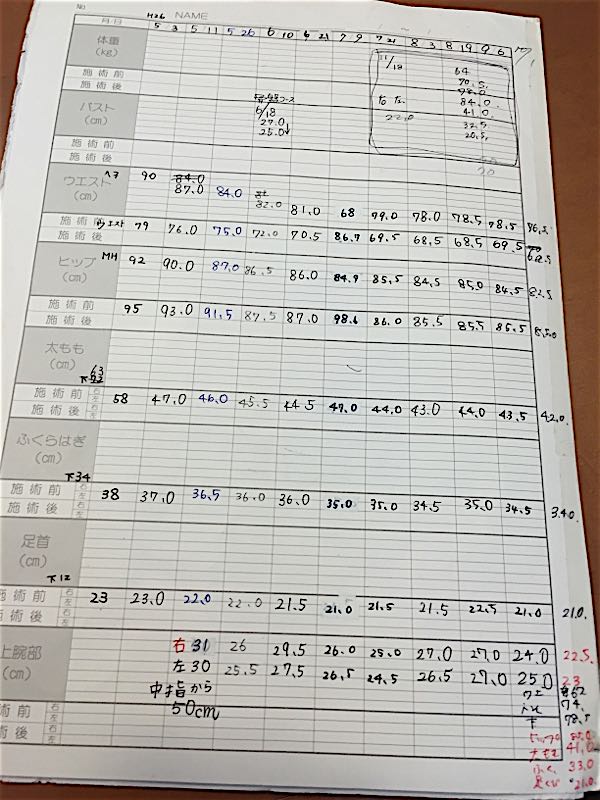 No
H26 NAME
月/日 5 3 5 11 5 26 6 10 6 21 7 9 7 21 8 3 8 19 9 6
体重
(kg)
11/18 64
施術前 70.5
施術後 78.0
バスト 84.0
(cm) 6/18 41.0
27.0 22.0 32.5
25.0↓ 20.5
施術前
施術後
ウエスト 90 84.0
(cm) 87.0 84.0 82.0 81.0 68 79.0 78.0 78.5 78.5 76.5
施術前
施術後 ウエスト 79 76.0 75.0 72.0 70.5 86.7 69.5 68.5 68.5 69.5 68.5
ヒップ MH 92 90.0 87.0 86.5 86.0 84.9 85.5 84.5 85.0 84.5 82.5
(cm)
施術前 95 93.0 91.5 87.5 87.0 98.6 86.0 85.5 85.5 85.5 85.0
施術後
太もも
(cm) 63
下
施術前 右 左 58 47.0 46.0 45.5 44.5 47.0 44.0 43.0 44.0 43.5 42.0
施術後 右 左
ふくらはぎ
(cm)
下34
施術前 右 左 38 37.0 36.5 36.0 36.0 35.0 35.0 34.5 35.0 34.5 34.0
施術後 右 左
足首
(cm)
下12
施術前 右 左 23 23.0 22.0 22.0 21.5 21.0 21.5 21.5 22.5 21.0 21.0
施術後 右 左
上腕部 右 31 26 29.5 26.0 25.0 27.0 27.0 24.0 22.5
(cm) 左 30 25.5 27.5 26.5 24.5 26.5 27.0 25.0 23
中指から 62
50cm 74
施術前 右 左 下 78.5
ヒップ 85.0
施術後 右 左 太もも 41.0
ふく 33.0
足くび 21.0